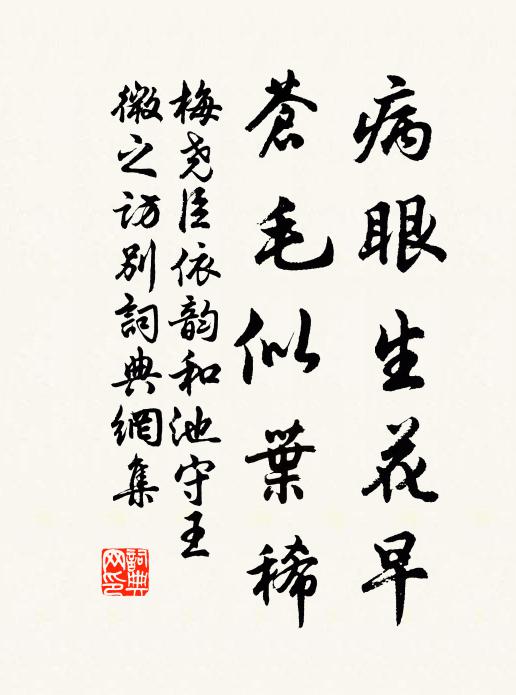 病眼生花早
蒼毛似葉稀
梅尧臣依韵和池守王
微之访别詞典網集
詞典网印